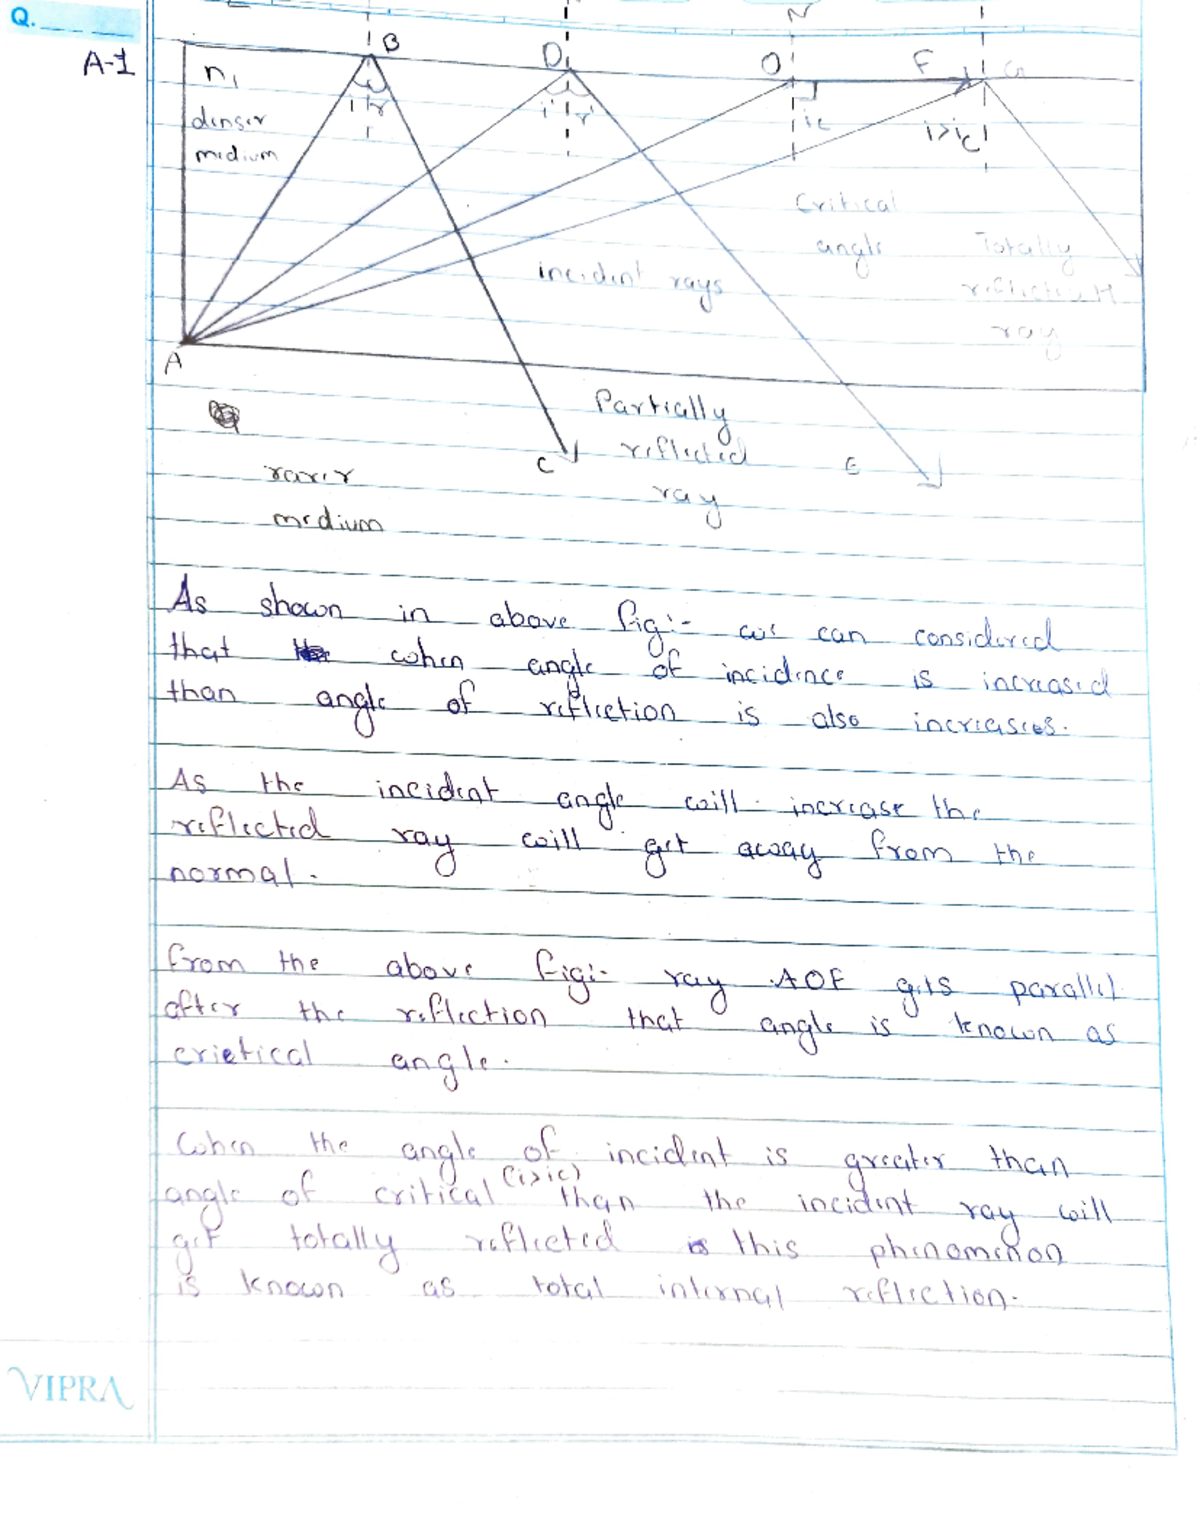 Q.
A-1
N
B
D
O
F
G
n1
denser
medium
i
r
i
r
ic
i>ic
Critical
angle
Totally
reflected
ray
H
incident rays
A
Partially
reflected
ray
C
E
rarer
medium
As shown in above fig:- we can considered
that when angle of incidence is increased
than angle of reflection is also increases.
As the incident angle will increase the
reflected ray will get away from the
normal.
from the above fig:- ray AOF gets parallel
after the reflection that angle is known as
crietical angle.
When the angle of incident is greater than
angle of critical (i>ic) than the incident ray will
get totally reflected this phenomenon
is known as total internal reflection.
VIPRA